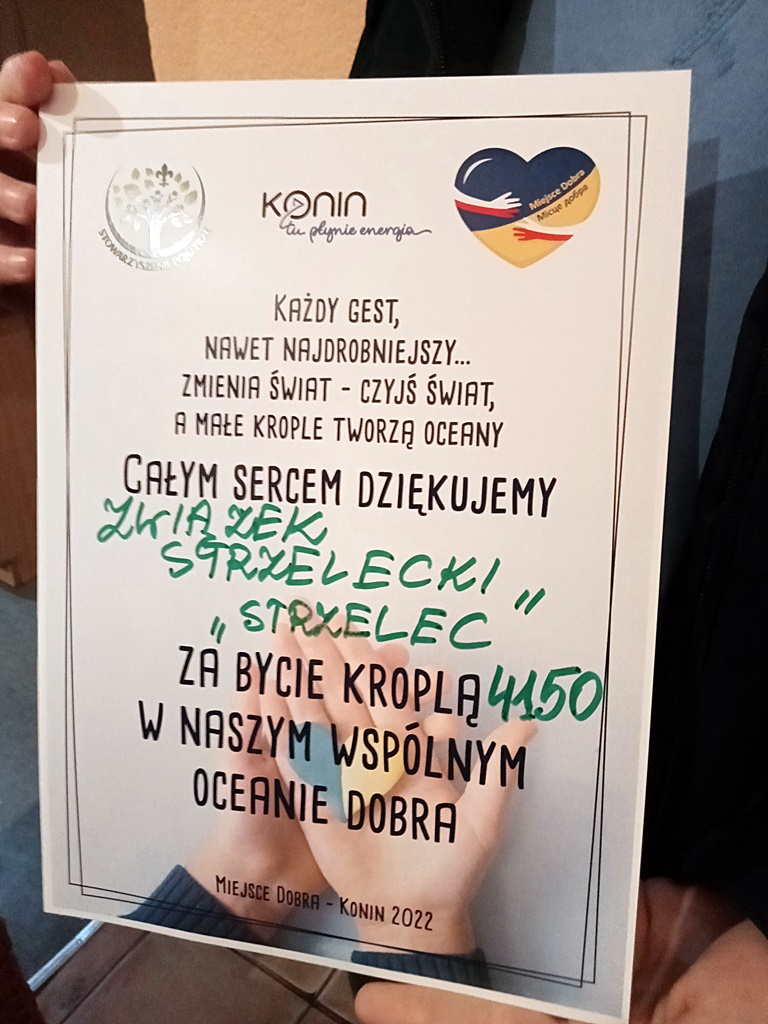 STOWARZYSZENIE
KONIN
tu płynie energia
Miejsce Dobra
Місце добра
KAŻDY GEST,
NAWET NAJDROBNIEJSZY...
ZMIENIA ŚWIAT - CZYJŚ ŚWIAT,
A MAŁE KROPLE TWORZĄ OCEANY
CAŁYM SERCEM DZIĘKUJEMY
ZWIĄZEK
STRZELECKI "
"STRZELEC
ZA BYCIE KROPLĄ 4150
W NASZYM WSPÓLNYM
OCEANIE DOBRA
MIEJSCE DOBRA - KONIN 2022